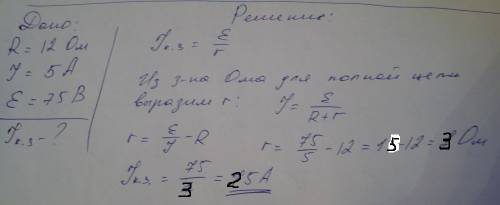 Дано:
R = 12 Ом
I = 5 А
ℰ = 75 В
Iк.з - ?
Решение:
Iк.з = ℰ/r
Из з-на Ома для полной цепи
выразим r: I = ℰ/(R+r)
r = ℰ/I - R r = 75/5 - 12 = 15-12 = 3 Ом
Iкз. = 75/3 = 25А